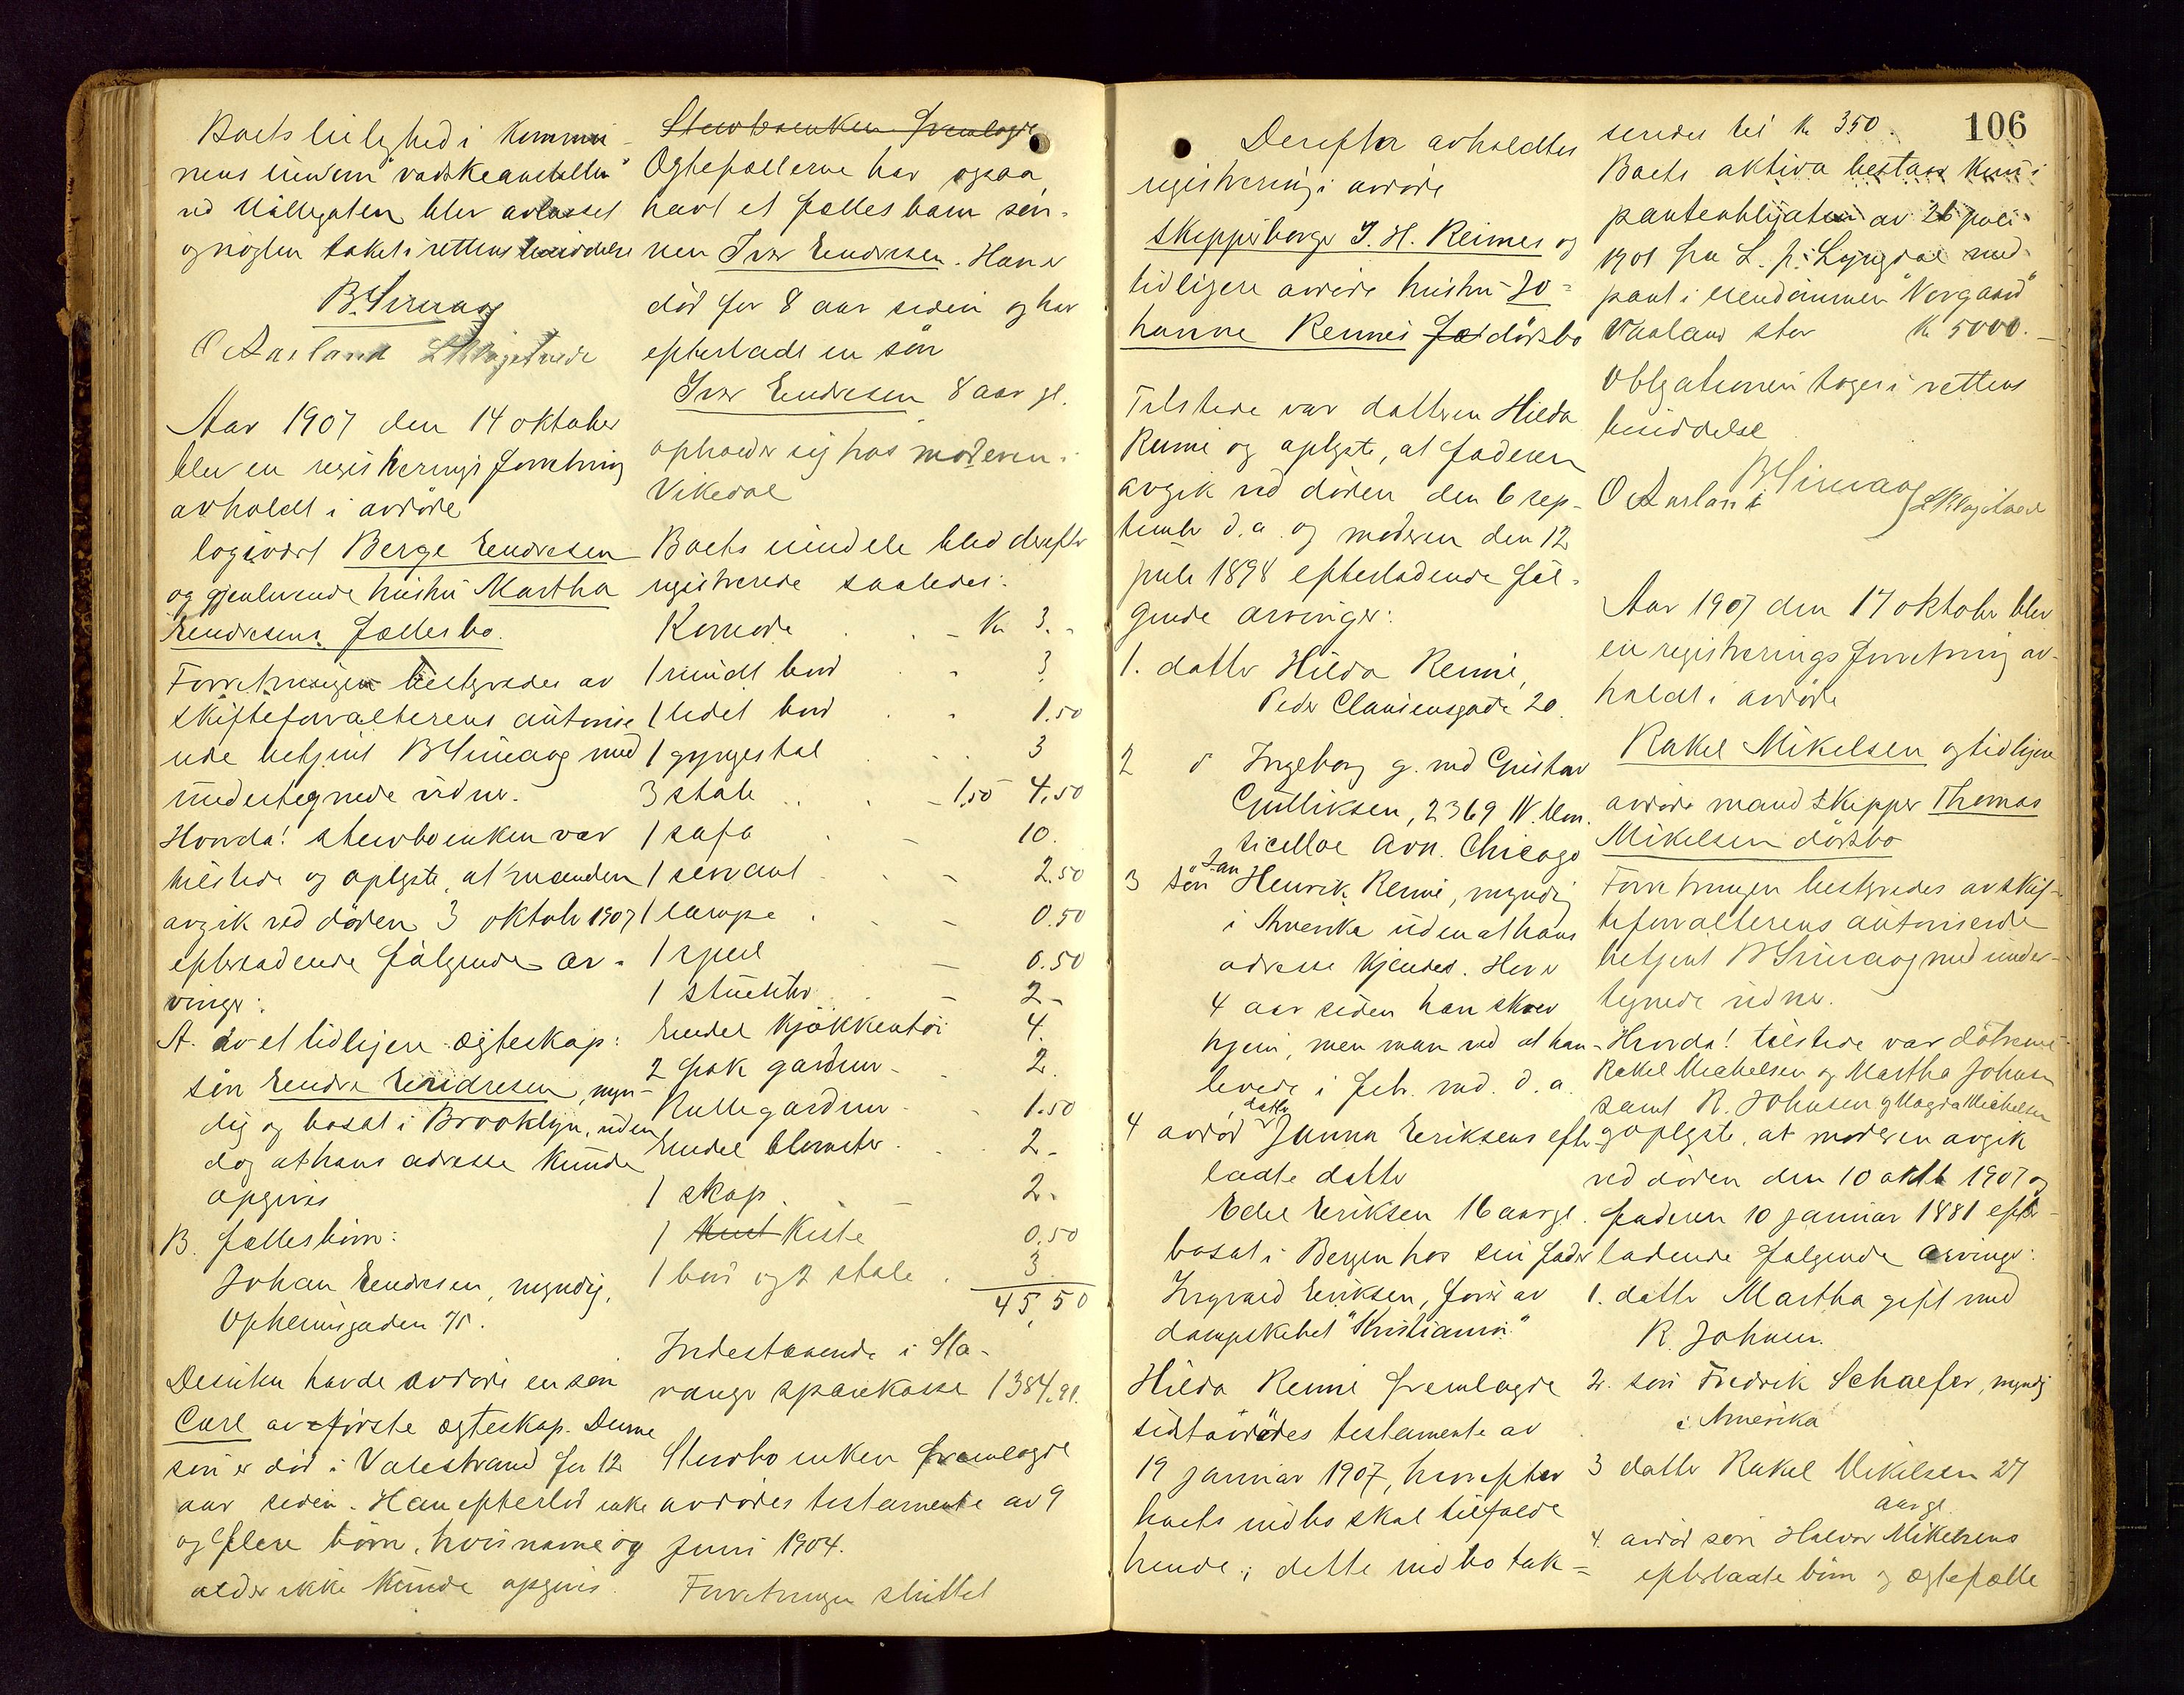 Boets leilighed i kommu-
nens eiendom "vadskeanstalten"
ved Møllegaten blev avlaaset
og nøglen taket i rettens besiddelse
B. Simaas
O Aasland
Aar 1907 den 14 oktober
blev en registreringsforretning
avholdt i avdøde
logivært Berge Endresen
og gjenlevende hustru Martha
Endresens fællesbo.
Forretningen bestyredes av
skifteforvalterens autorise
rede betjent B Simaas med
undertegnede vidner.
Hvorda! stervboenken var
tilstede og oplyste, at manden
avgik ved døden 3 oktobr 1907
efterladende følgende ar-
vinger:
A. av et tidligere ægteskap:
søn Endre Endresen, myn-
dig og bosat i Brooklyn, uden
dog at hans adresse kunde
opgives
B. fællesbørn:
Johan Endresen, myndig,
Opheimsgaden 75.
Desuten havde avdøde en søn
Carl av første ægteskap. Denne
søn er død i Valestrand for 12
aar siden. Han efterlod enke
og flere børn, hvis navne og
alder ikke kunde opgives.
Stervboenken fremlagde
Ogtefællerne har ogsaa
havt et fælles barn søn-
nen Iver Endresen. Han er
død for 8 aar siden og har
efterladt en søn
Iver Endresen 8 aar gl.
opholder sig hos moderen i
Vikedal
Boets eiendele blev derefter
registrerede saaledes:
Komode - Kr 3.-
1 rundt bord - 3
1 lidet bord - 1.50
1 gyngestol - 3
3 stole - 1,50 4.50
1 sofa - 10.
1 servant - 2.50
1 lampe - 0.50
1 speil - 0.50
1 stueuhr - 2-
Endel kjøkkentøi 4.
2 fak gardiner - 2.
Rullegardiner - 1.50
Endel blomster - 2-
1 skap - 2.
1 Kist Kiste 0.50
1 bord og 2 stole 3
45,50
Indestaaende i Sta-
vanger sparekasse 1384.91.
Stervboenken fremlagde
avdødes testamente av 9
Juni 1904.
Forretningen sluttet
106
Derefter avholdtes
registrering i avdøde
skipperborger J. H. Reimes og
tidligere avdøde hustru Jo-
hanne Reimes fæ dødsbo
Tilstede var datteren Hilda
Reime og oplyste, at faderen
avgik ved døden den 6 sep-
tember d.a. og moderen den 12
juli 1898 efterladende føl-
gende arvinger:
1. datter Hilda Reime,
Peder Clausensgade 20.
2 d Ingeborg g. med Gustav
Gulliksen, 2369 N. Mon-
ticelloe Avn. Chicago
3 søn Henrik Reime, myndig
i Amerika uden at hans
adresse kjendes. Her er
4 aar siden han skrev
hjem, men man ved at han
levede i febr. md. d.a.
4 avdød datter Janna Eriksens efter
ladte datter
Edel Eriksen 16 aar gl.
bosat i Bergen hos sin fader
Ingvald Eriksen, fører av
dampskibet "Kristiania"
Hilda Reime fremlagde
sidstavdødes testamente av
19 januar 1907, hvorefter
boets indbo skal tilfalde
hende; dette indbo tak-
seredes til kr 350.
Boets aktiva bestaar kun i
panteobligation av 26 juli
1901 fra L. P. Lyngdal med
pant i eiendommen "Vorgaard"
Vaaland stor kr 5000.-
Obligationen toges i rettens
besiddelse
B Simaas
O Aasland
Aar 1907 den 17 oktober blev
en registreringsforretning av-
holdt i avdøde
Rakel Mikelsen og tidligere
avdøde mand skipper Thomas
Mikelsen dødsbo
Forretningen bestyredes av skif-
teforvalterens autoriserede
betjent B Simaas med under-
tegnede vidner.
Hvorda! tilstede var døtrene
Rakel Mickelsen og Martha Johnsen
samt R. Johnsen og Magda Mickelsen
og oplyste, at moderen avgik
ved døden den 10 oktb 1907 og
faderen 10 januar 1881 efter-
ladende følgende arvinger:
1. datter Martha gift med
R. Johnsen.
2. søn Fredrik Schaefer, myndig
i Amerika
3 datter Rakel Mikelsen 27
aar gl.
4. avdød søn Halvor Mikelsens
efterlaate børn og ægtefælle